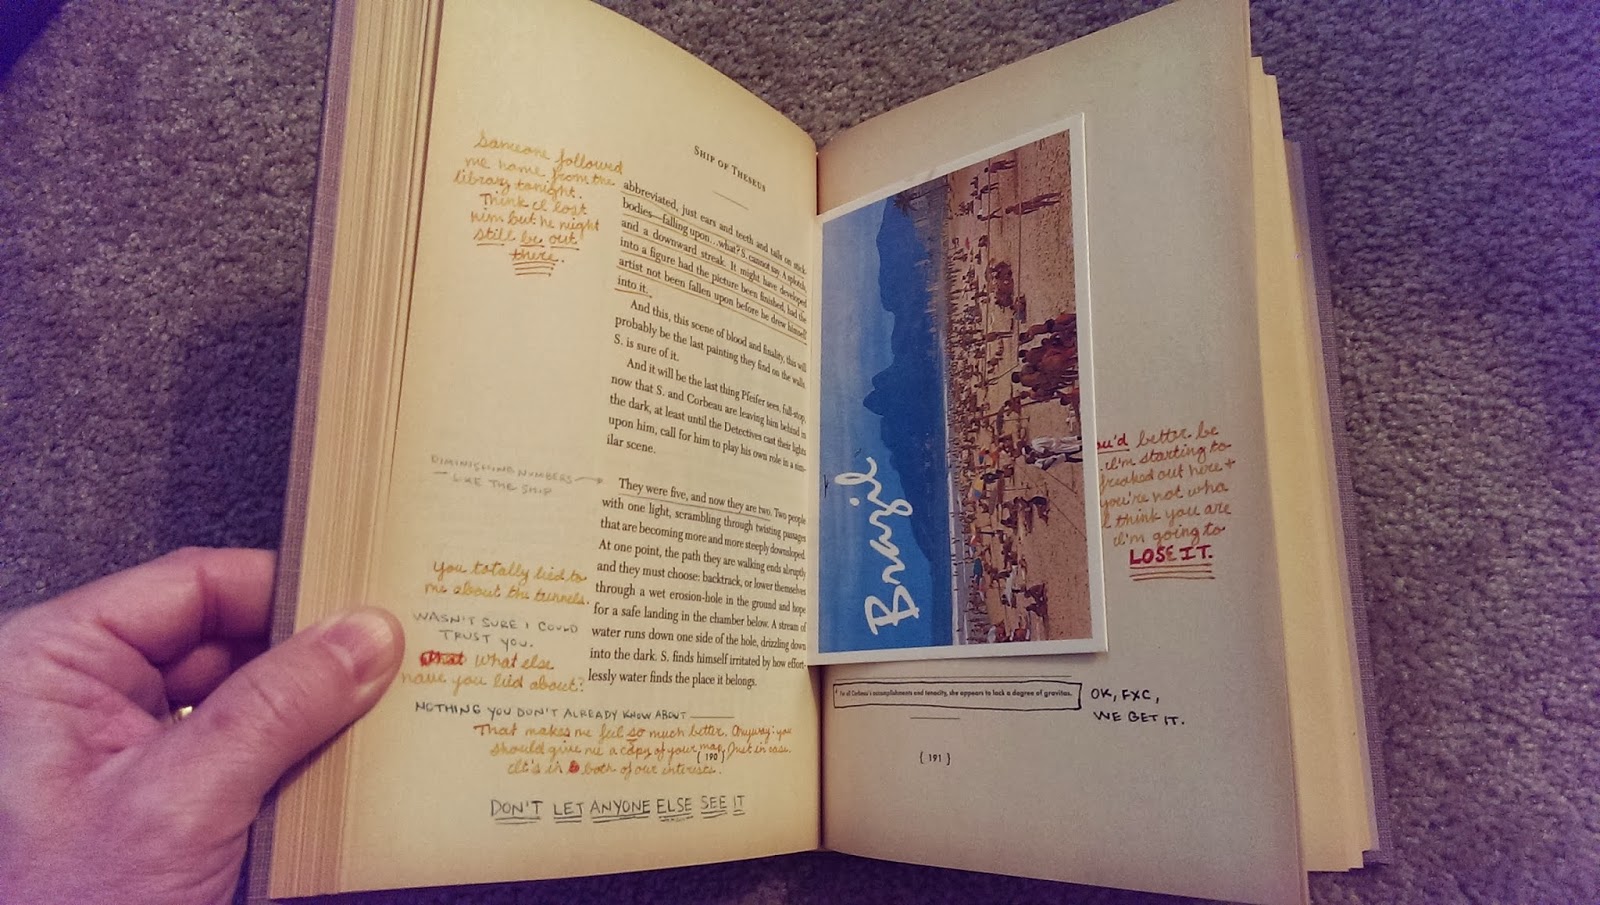 SHIP OF THESEUS
Someone followed
me home from the
library tonight.
Think I lost
him but he might
still be out
there.
abbreviated, just ears and teeth and tails on stick-
bodies—falling upon…what? S. cannot say. A splotch,
and a downward streak. It might have developed
into a figure had the picture been finished, had the
artist not been fallen upon before he drew himself
into it.
And this, this scene of blood and finality, this will
probably be the last painting they find on the walls.
S. is sure of it.
And it will be the last thing Pfeifer sees, full-stop,
now that S. and Corbeau are leaving him behind in
the dark, at least until the Detectives cast their lights
upon him, call for him to play his own role in a sim-
ilar scene.
DIMINISHING NUMBERS
– LIKE THE SHIP
They were five, and now they are two. Two people
with one light, scrambling through twisting passages
that are becoming more and more steeply downsloped.
At one point, the path they are walking ends abruptly
and they must choose: backtrack, or lower themselves
through a wet erosion-hole in the ground and hope
for a safe landing in the chamber below. A stream of
water runs down one side of the hole, drizzling down
into the dark. S. finds himself irritated by how effort-
lessly water finds the place it belongs.
You totally lied to
me about the tunnels.
WASN'T SURE I COULD
TRUST YOU.
What else
have you lied about?
NOTHING YOU DON'T ALREADY KNOW ABOUT
That makes me feel so much better. Anyway: you
should give me a copy of your map. Just in case.
It's in both of our interests.
{ 190 }
DON'T LET ANYONE ELSE SEE IT
Brazil
better be
I'm starting to
freaked out here +
you're not who
I think you are
I'm going to
LOSE IT.
* For all Corbeau's accomplishments and tenacity, she appears to lack a degree of gravitas.
OK, FXC,
WE GET IT.
{ 191 }